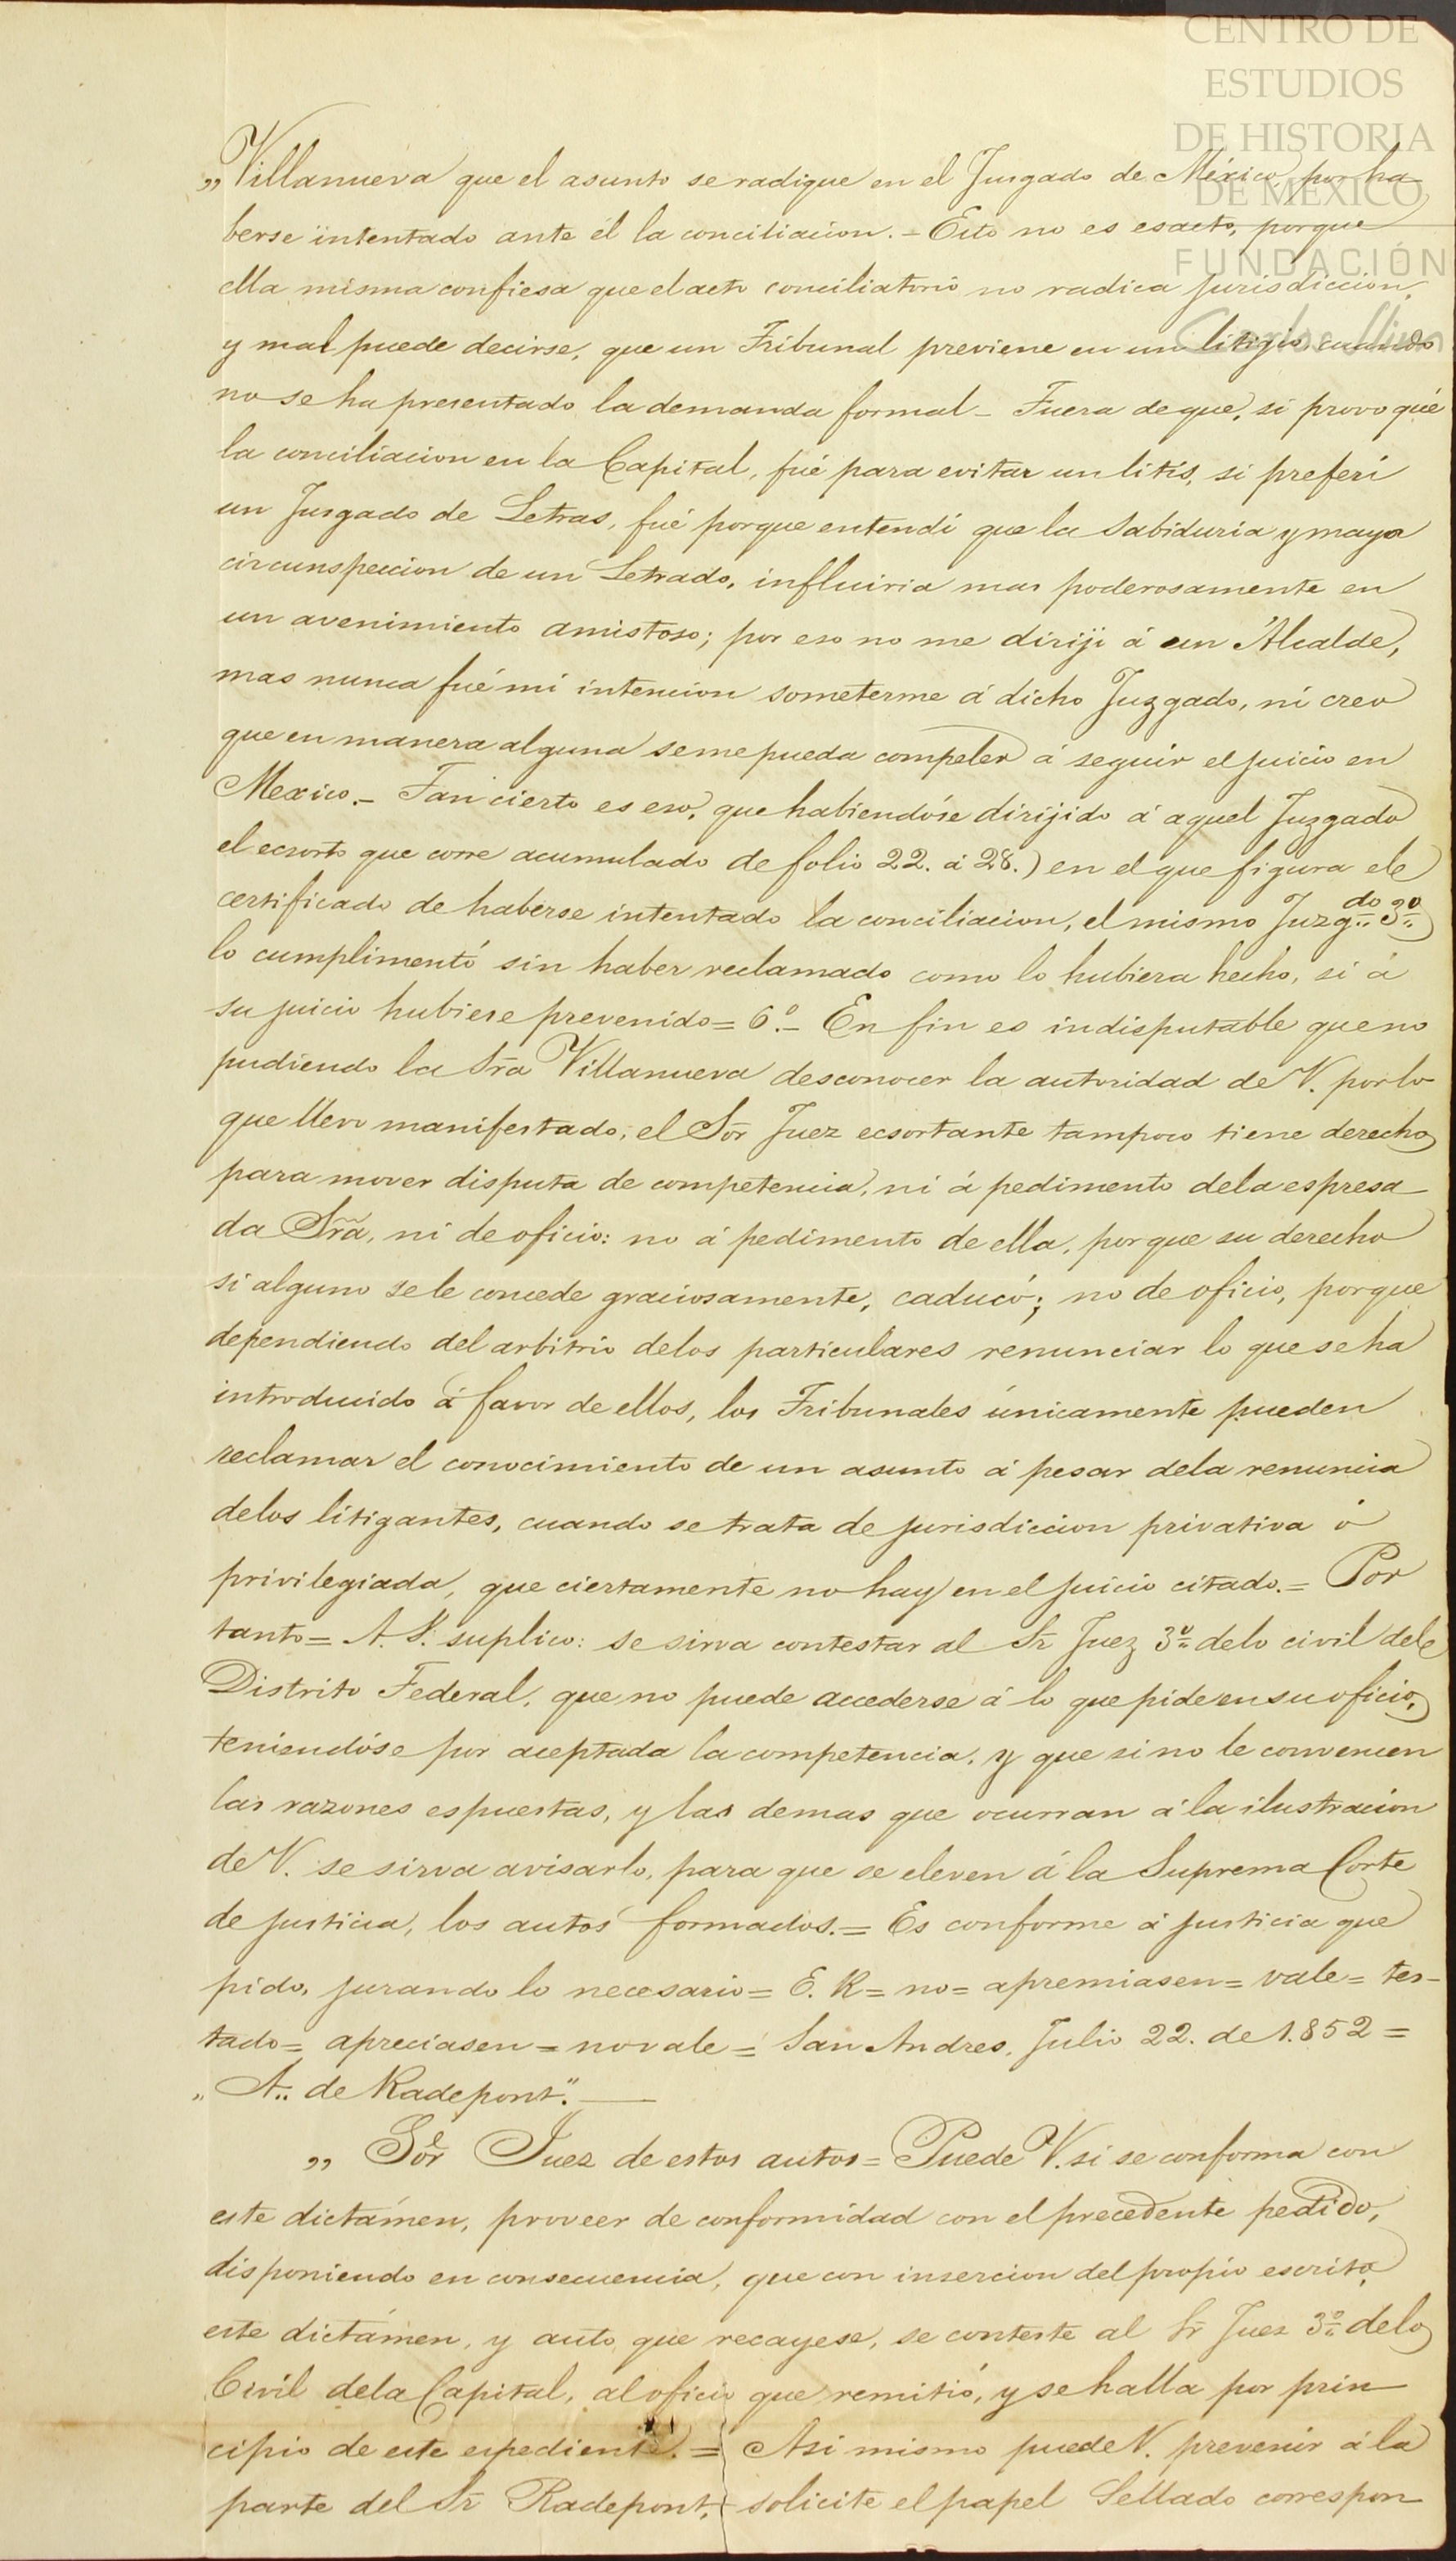 CENTRO DE
ESTUDIOS
DE HISTORIA
DE MÉXICO
FUNDACIÓN
Carlos Slim
„Villanueva que el asunto se radique en el Jusgado de México, por ha-
berse intentado ante él la conciliacion. - Esto no es esacto, porque
ella misma confiesa que el acto conciliatorio no radica jurisdiccion,
y mal puede decirse, que un Tribunal previene en un litigio, cuando
no se ha presentado la demanda formal - Fuera de que, si provoqué
la conciliacion en la Capital, fué para evitar un litis, si preferí
un Jusgado de Letras, fué porque entendí que la sabiduria y mayor
circunspeccion de un Letrado, influiria mas poderosamente en
un avenimiento amistoso; por eso no me diriji á un Alcalde,
mas nunca fué mi intencion someterme á dicho Juzgado, ni creo
que en manera alguna se me pueda compeler á seguir el juicio en
Mexico. - Tan cierto es eso, que habiendóse dirijido á aquel Juzgado
el ecsorto que corre acumulado de folio 22. á 28.) en el que figura el
certificado de haberse intentado la conciliacion, el mismo Juzgdo 3º
lo cumplimentó sin haber reclamado como lo hubiera hecho, si á
su juicio hubiese prevenido = 6º. - En fin es indisputable que no
pudiendo la Sra Villanueva desconocer la autoridad de V. por lo
que llevo manifestado, el Sor Juez ecsortante tampoco tiene derecho
para mover disputa de competencia, ni á pedimento dela espresa-
da Sra, ni de oficio: no á pedimento de ella, porque su derecho
si alguno se le concede graciosamente, caducó; no de oficio, porque
dependiendo del arbitrio delos particulares renunciar lo que se ha
introducido á favor de ellos, los Tribunales únicamente pueden
reclamar el conocimiento de un asunto á pesar dela renuncia
delos litigantes, cuando se trata de jurisdiccion privativa ó
privilegiada, que ciertamente no hay en el juicio citado. = Por
tanto = A. V. suplico: se sirva contestar al Sr Juez 3º delo civil del
Distrito Federal, que no puede accederse á lo que pide en su oficio,
teniendóse por aceptada la competencia, y que si no le convencen
las razones espuestas, y las demas que ocurran á la ilustracion
de V. se sirva avisarlo, para que se eleven á la Suprema Corte
de justicia, los autos formados. = Es conforme á justicia que
pido, jurando lo necesario = E. R = no = apremiasen = vale = tes-
tado = apreciasen = no vale = San Andres, Julio 22. de 1.852 =
„A.. de Radepont." —
„ Sor Juez de estos autos = Puede V. si se conforma con
este dictámen, proveer de conformidad con el precedente pedido,
disponiendo en consecuencia, que con insercion del propio escrito,
este dictámen, y auto que recayese, se conteste al Sr Juez 3º delo
Civil dela Capital, al oficio que remitió, y se halla por prin-
cipio de este espediente. = Asi mismo puede V. prevenir á la
parte del Sr Radepont, solicite el papel Sellado correspon-